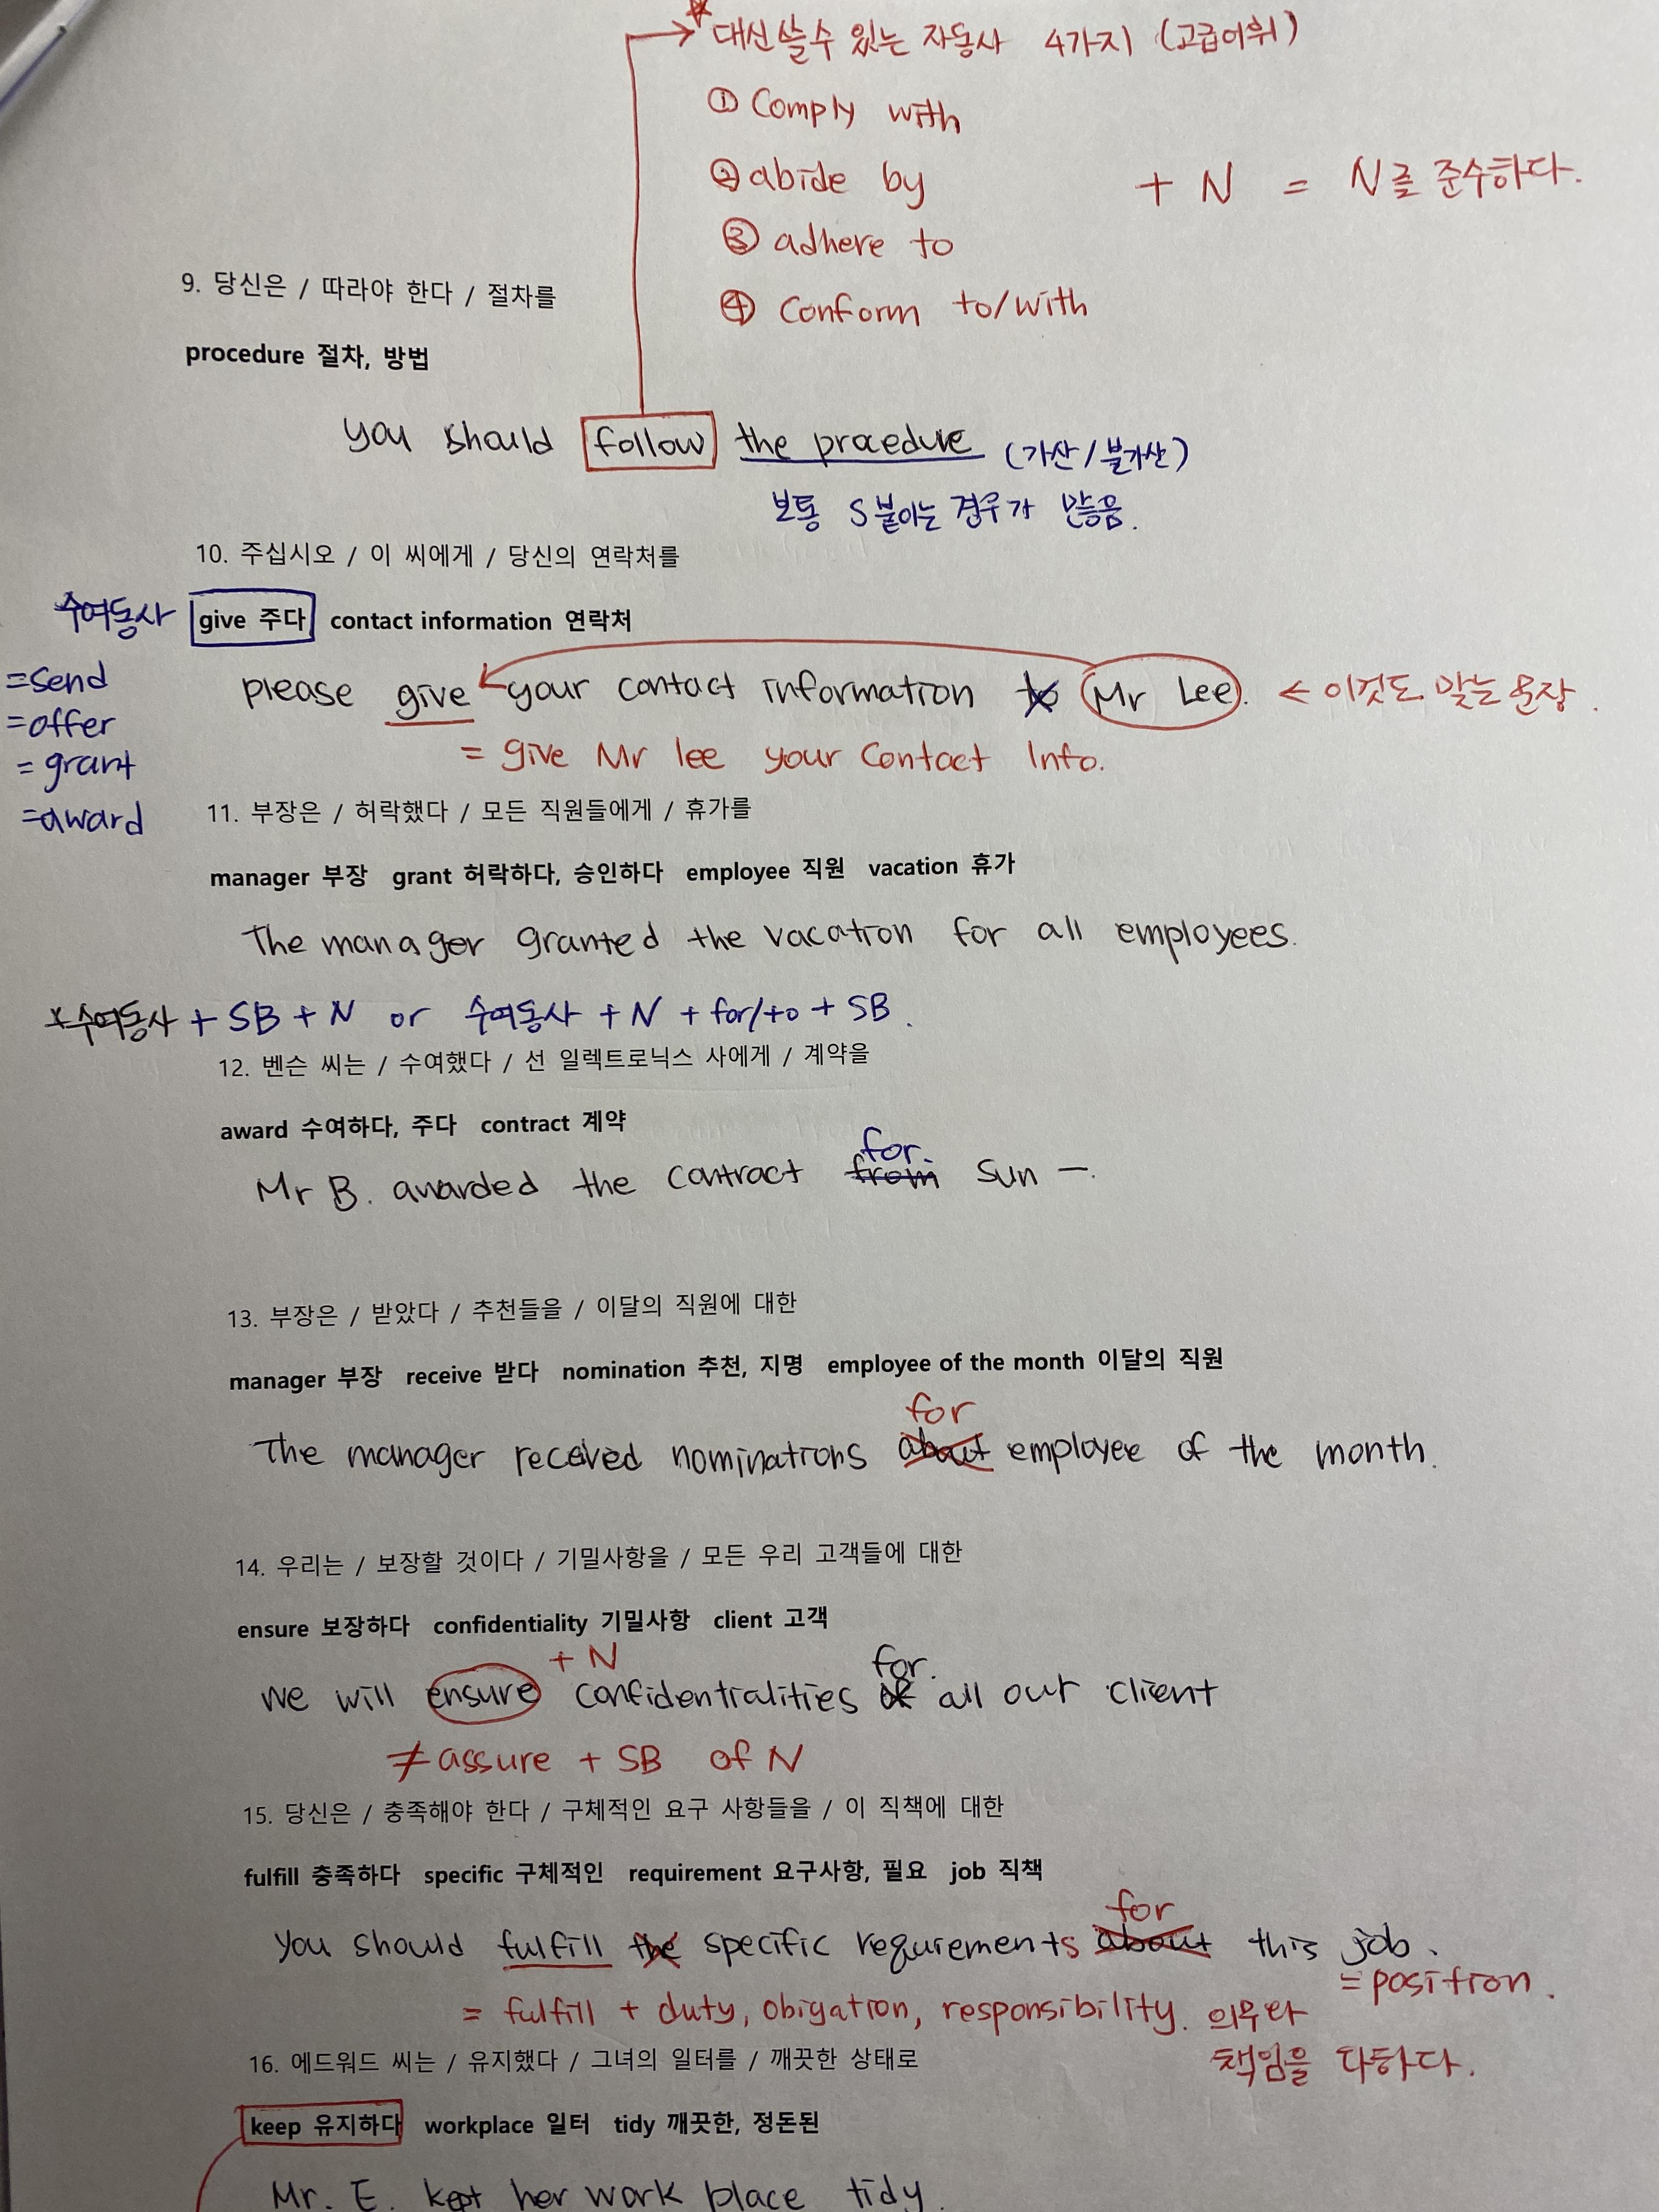 대신쓸수 있는 자동사 4가지 (고급어휘)
① Comply with
② abide by + N = N를 준수하다.
③ adhere to
④ Conform to/with
9. 당신은 / 따라야 한다 / 절차를
procedure 절차, 방법
you should follow the procedure (가산/불가산)
보통 S붙이는 경우가 많음.
10. 주십시오 / 이 씨에게 / 당신의 연락처를
수여동사 give 주다 contact information 연락처
=send
=offer
=grant
=award
please give your contact information to Mr Lee. ← 이것도 맞는 문장.
= give Mr lee your Contact Info.
11. 부장은 / 허락했다 / 모든 직원들에게 / 휴가를
manager 부장 grant 허락하다, 승인하다 employee 직원 vacation 휴가
The manager granted the vacation for all employees.
*수여동사 + SB + N or 수여동사 + N + for/to + SB.
12. 벤슨 씨는 / 수여했다 / 선 일렉트로닉스 사에게 / 계약을
award 수여하다, 주다 contract 계약
for.
Mr B. awarded the contract from Sun —.
13. 부장은 / 받았다 / 추천들을 / 이달의 직원에 대한
manager 부장 receive 받다 nomination 추천, 지명 employee of the month 이달의 직원
for
The manager received nominations about employee of the month.
14. 우리는 / 보장할 것이다 / 기밀사항을 / 모든 우리 고객들에 대한
ensure 보장하다 confidentiality 기밀사항 client 고객
+ N for.
We will ensure confidentialities of all our client
≠ assure + SB of N
15. 당신은 / 충족해야 한다 / 구체적인 요구 사항들을 / 이 직책에 대한
fulfill 충족하다 specific 구체적인 requirement 요구사항, 필요 job 직책
for
You should fulfill the specific requirements about this job.
= position.
= fulfill + duty, obigation, responsibility. 의무와
책임을 다하다.
16. 에드워드 씨는 / 유지했다 / 그녀의 일터를 / 깨끗한 상태로
keep 유지하다 workplace 일터 tidy 깨끗한, 정돈된
Mr. E. kept her work place tidy.